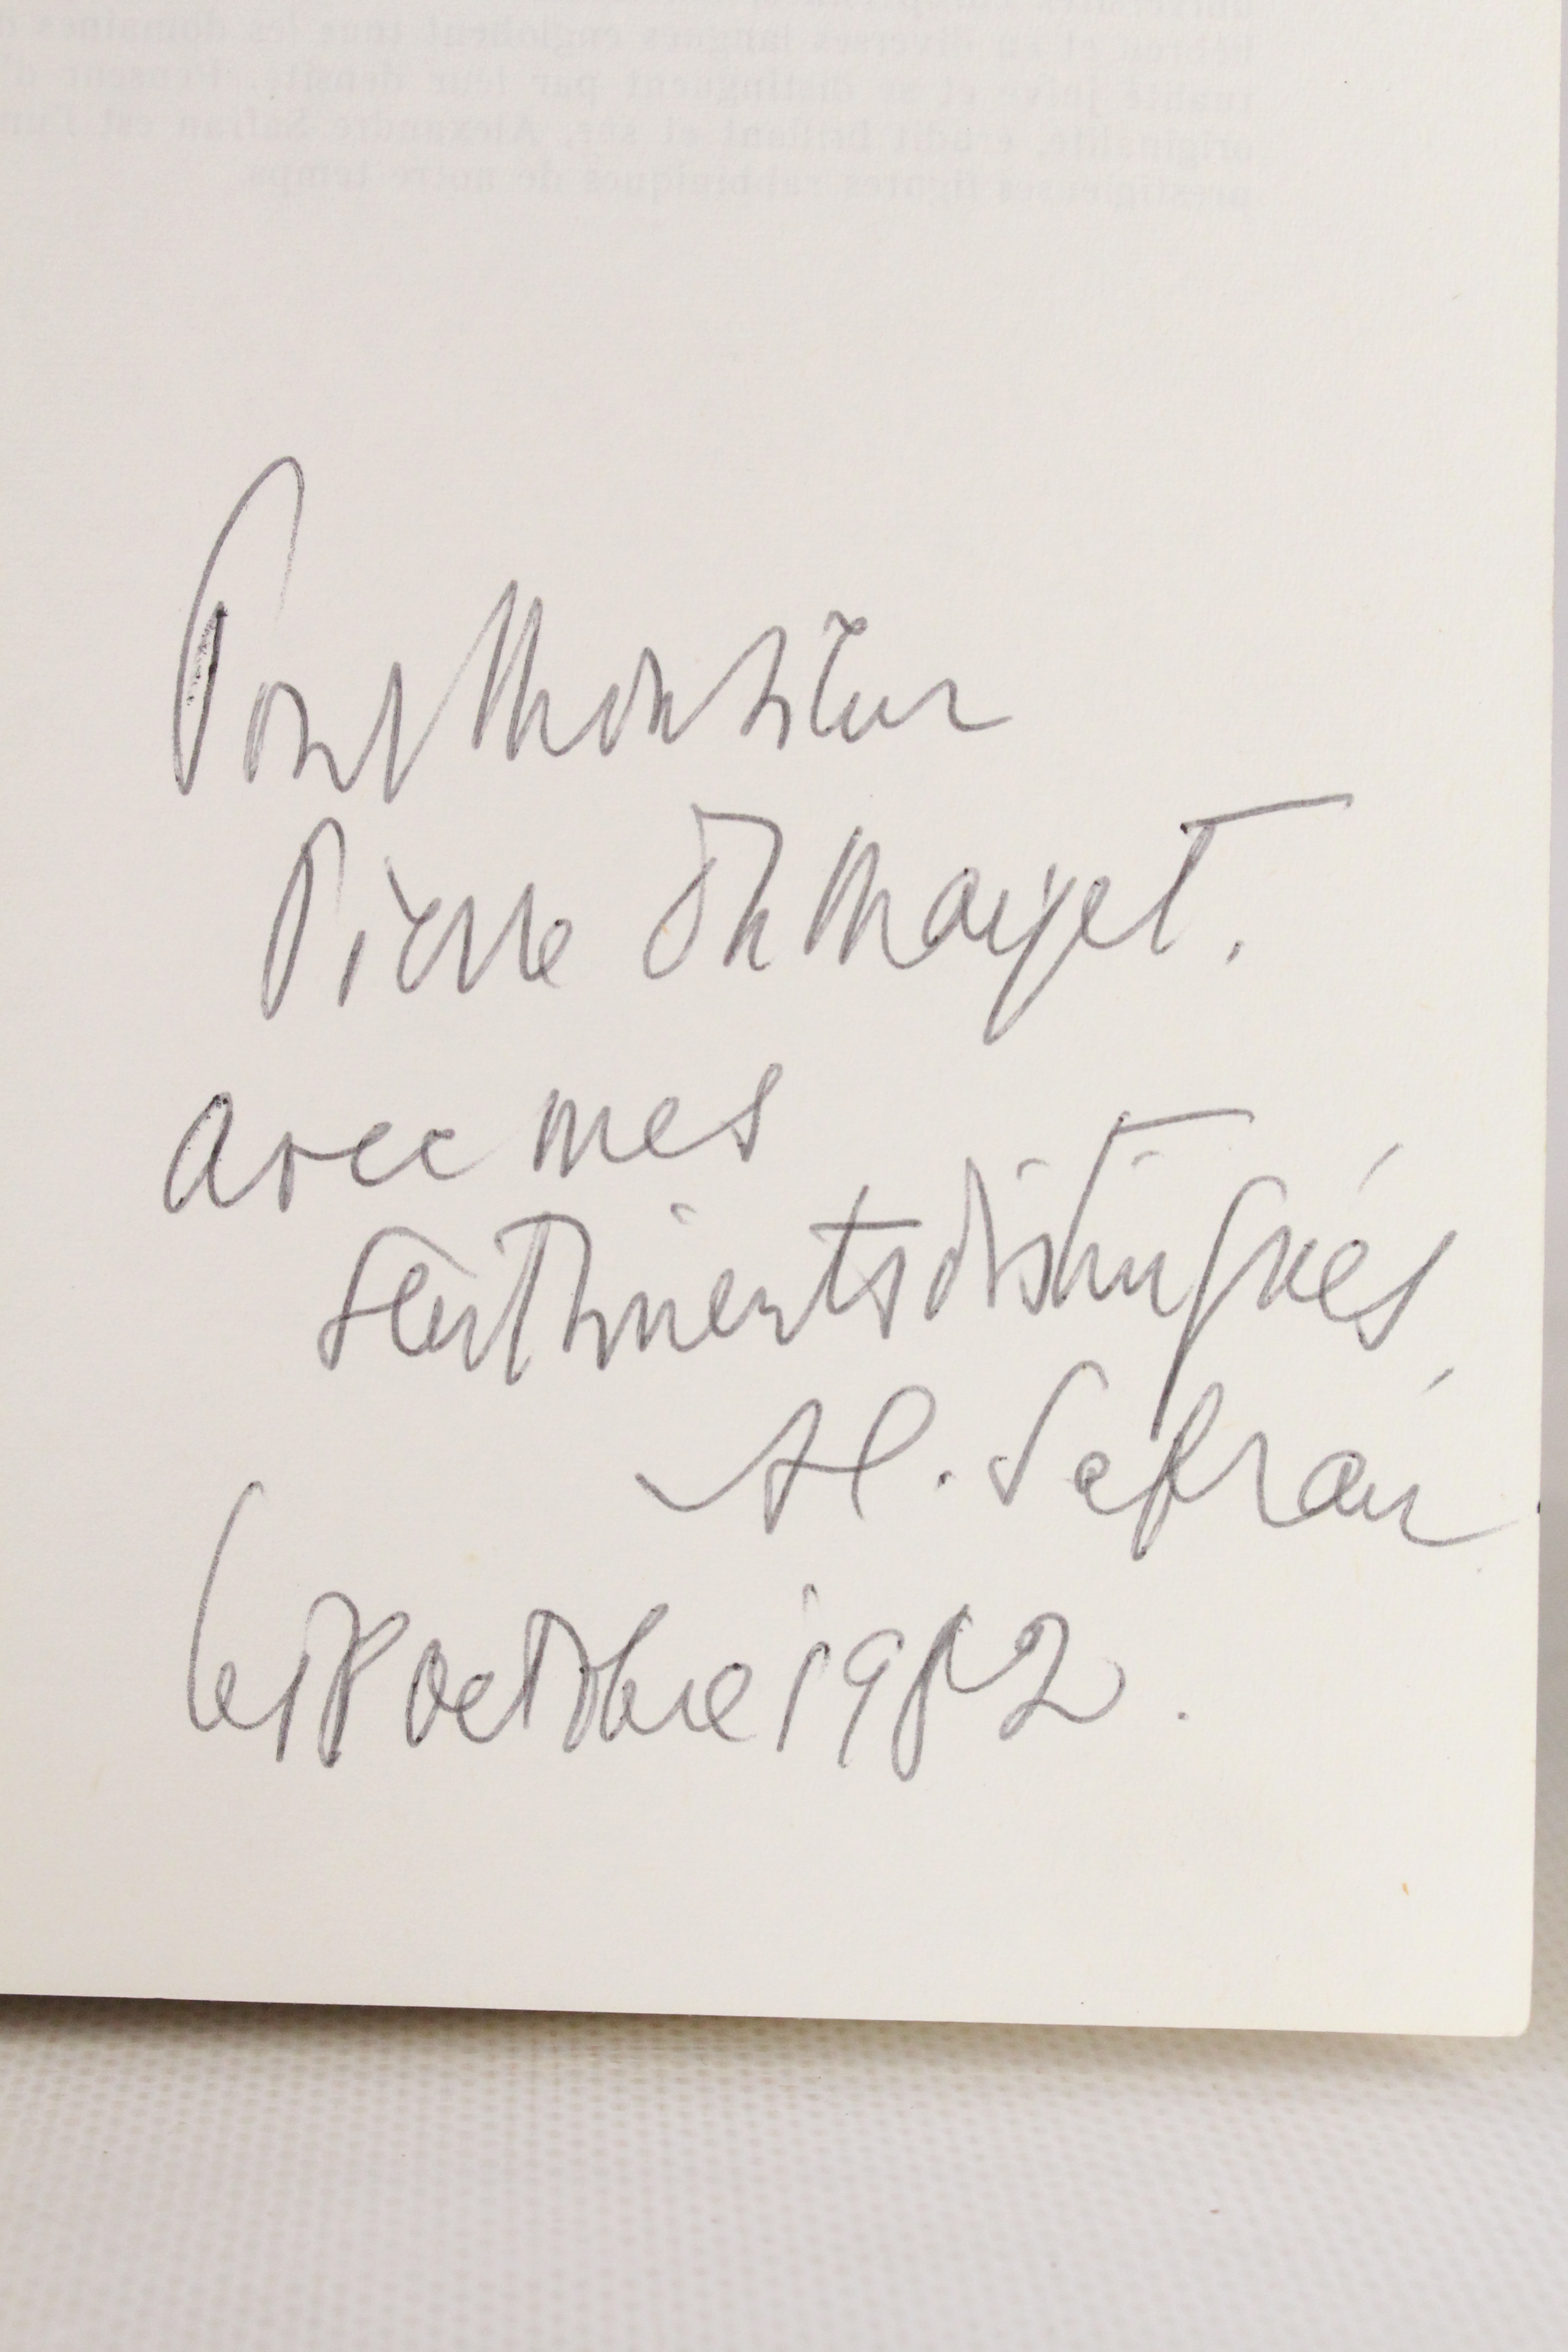 hébreu et en diverses langues englobent tous les domaines
tualité juive et se distinguent par leur densité. Penseur d'
originalité, érudit brillant et sûr, Alexandre Safran est l'un
prestigieuses figures rabbiniques de notre temps.
Pour Monsieur
Pierre Dumayet.
avec mes
sentiments distingués,
Al. Safran
le 18 octobre 1982.